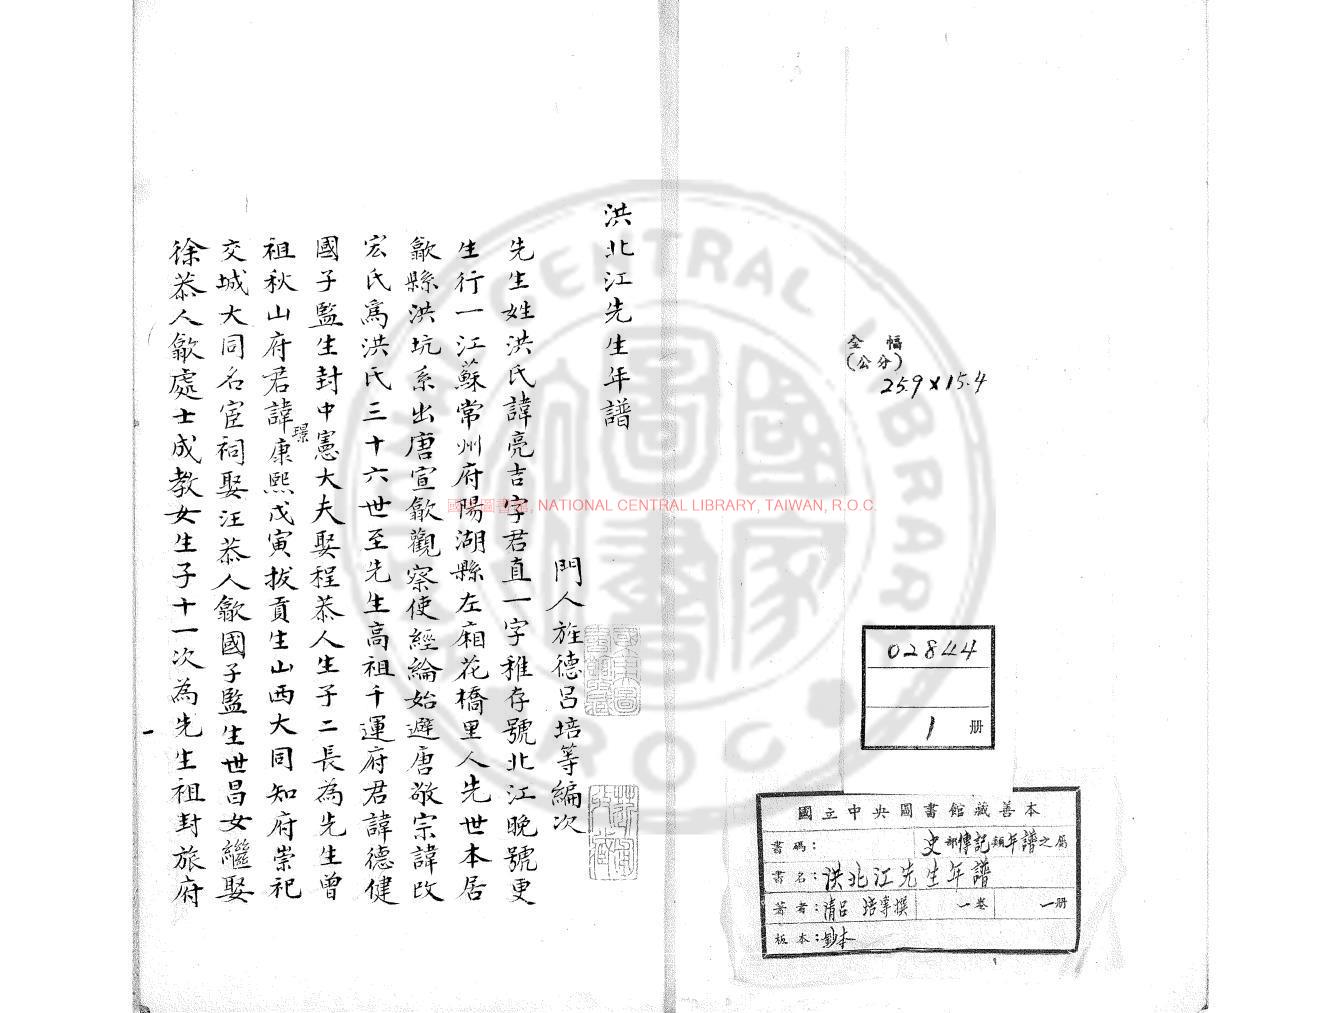 全幅
(公分)
25.9×15.4
02844
1 册
國立中央圖書館藏善本
書碼： 史部傳記類年譜之屬
書名：洪北江先生年譜
著者：清呂 培等撰 一卷 一册
板本：鈔本
洪北江先生年譜
門人旌德呂培等編次
先生姓洪氏諱亮吉字君直一字稚存號北江晚號更
生行一江蘇常州府陽湖縣左廂花橋里人先世本居
歙縣洪坑系出唐宣歙觀察使經綸始避唐敬宗諱改
宏氏爲洪氏三十六世至先生高祖千運府君諱德健
國子監生封中憲大夫娶程恭人生子二長為先生曾
祖秋山府君諱璟康熙戊寅拔貢生山西大同知府崇祀
交城大同名宦祠娶汪恭人歙國子監生世昌女繼娶
徐恭人歙處士成教女生子十一次為先生祖封旅府
國家圖書館, NATIONAL CENTRAL LIBRARY, TAIWAN, R.O.C.
NATIONAL CENTRAL LIBRARY
R.O.C.
國家圖書